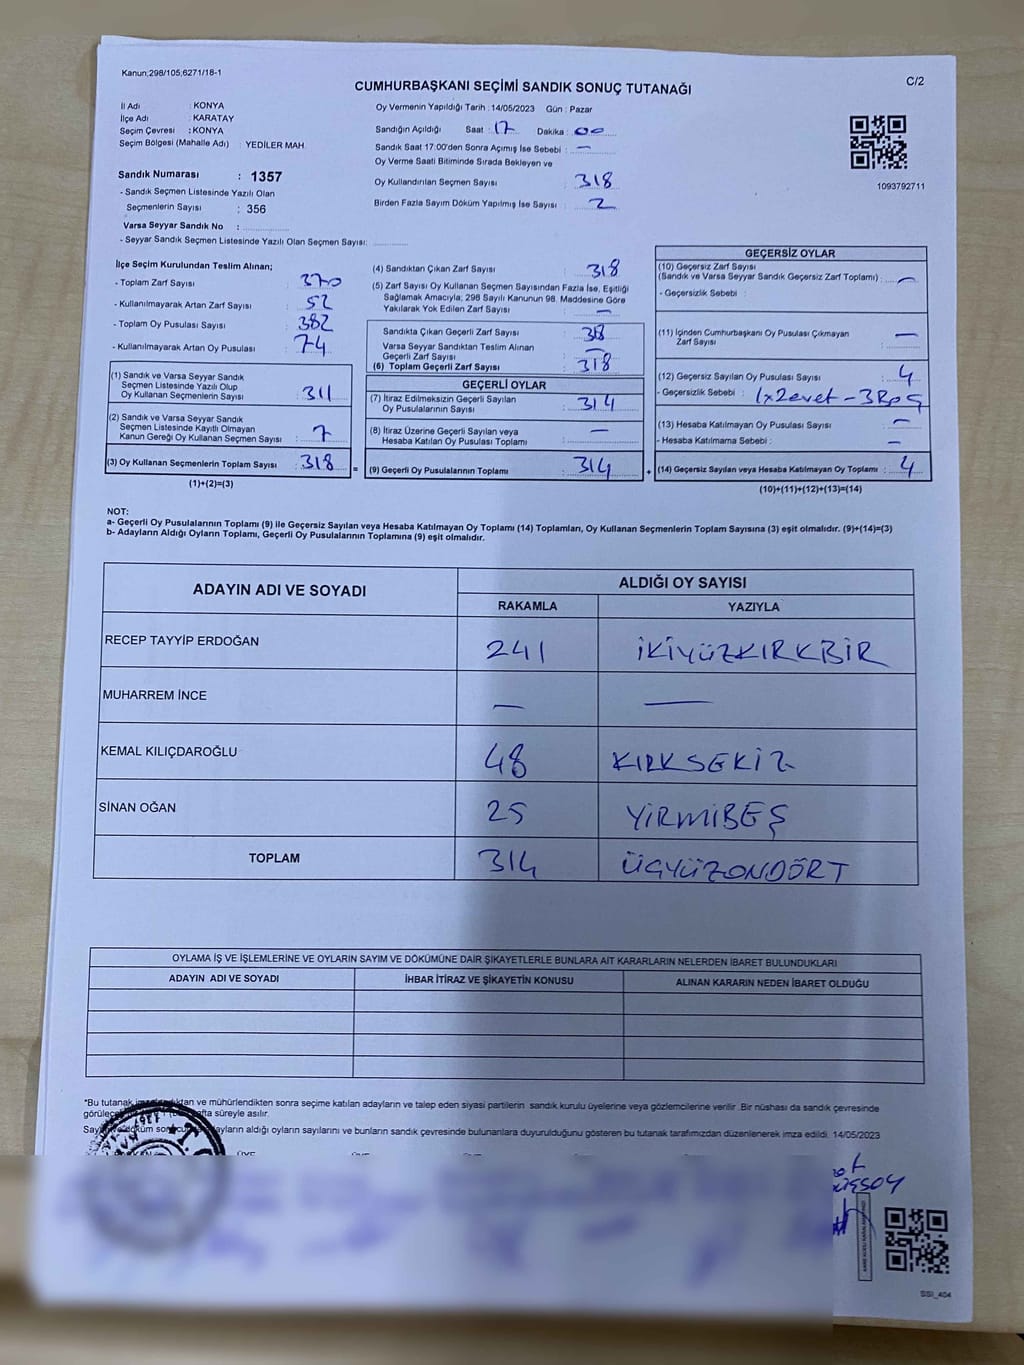 Kanun;298/105;6271/18-1
C/2
CUMHURBAŞKANI SEÇİMİ SANDIK SONUÇ TUTANAĞI
İl Adı : KONYA
İlçe Adı : KARATAY
Seçim Çevresi : KONYA
Seçim Bölgesi (Mahalle Adı) : YEDİLER MAH.
Sandık Numarası : 1357
- Sandık Seçmen Listesinde Yazılı Olan
Seçmenlerin Sayısı : 356
Varsa Seyyar Sandık No :
- Seyyar Sandık Seçmen Listesinde Yazılı Olan Seçmen Sayısı:
Oy Vermenin Yapıldığı Tarih : 14/05/2023 Gün : Pazar
Sandığın Açıldığı Saat : 17 Dakika : 00
Sandık Saat 17:00'den Sonra Açımış İse Sebebi : —
Oy Verme Saati Bitiminde Sırada Bekleyen ve
Oy Kullandırılan Seçmen Sayısı : 318
Birden Fazla Sayım Döküm Yapılmış İse Sayısı : 2
1093792711
İlçe Seçim Kurulundan Teslim Alınan;
- Toplam Zarf Sayısı : 370
- Kullanılmayarak Artan Zarf Sayısı : 52
- Toplam Oy Pusulası Sayısı : 382
- Kullanılmayarak Artan Oy Pusulası : 74
(1) Sandık ve Varsa Seyyar Sandık
Seçmen Listesinde Yazılı Olup
Oy Kullanan Seçmenlerin Sayısı : 311
(2) Sandık ve Varsa Seyyar Sandık
Seçmen Listesinde Kayıtlı Olmayan
Kanun Gereği Oy Kullanan Seçmen Sayısı : 7
(3) Oy Kullanan Seçmenlerin Toplam Sayısı : 318 =
(1)+(2)=(3)
(4) Sandıktan Çıkan Zarf Sayısı : 318
(5) Zarf Sayısı Oy Kullanan Seçmen Sayısından Fazla İse, Eşitliği
Sağlamak Amacıyla; 298 Sayılı Kanunun 98. Maddesine Göre
Yakılarak Yok Edilen Zarf Sayısı : —
Sandıkta Çıkan Geçerli Zarf Sayısı : 318
Varsa Seyyar Sandıktan Teslim Alınan
Geçerli Zarf Sayısı : —
(6) Toplam Geçerli Zarf Sayısı : 318
GEÇERLİ OYLAR
(7) İtiraz Edilmeksizin Geçerli Sayılan
Oy Pusulalarının Sayısı : 314
(8) İtiraz Üzerine Geçerli Sayılan veya
Hesaba Katılan Oy Pusulası Toplamı : —
(9) Geçerli Oy Pusulalarının Toplamı : 314 +
GEÇERSİZ OYLAR
(10) Geçersiz Zarf Sayısı
(Sandık ve Varsa Seyyar Sandık Geçersiz Zarf Toplamı) : —
- Geçersizlik Sebebi :
(11) İçinden Cumhurbaşkanı Oy Pusulası Çıkmayan
Zarf Sayısı : —
(12) Geçersiz Sayılan Oy Pusulası Sayısı : 4
- Geçersizlik Sebebi : 1x2evet - 3Boş
(13) Hesaba Katılmayan Oy Pusulası Sayısı : —
- Hesaba Katılmama Sebebi : —
(14) Geçersiz Sayılan veya Hesaba Katılmayan Oy Toplamı : 4
(10)+(11)+(12)+(13)=(14)
NOT:
a- Geçerli Oy Pusulalarının Toplamı (9) ile Geçersiz Sayılan veya Hesaba Katılmayan Oy Toplamı (14) Toplamları, Oy Kullanan Seçmenlerin Toplam Sayısına (3) eşit olmalıdır. (9)+(14)=(3)
b- Adayların Aldığı Oyların Toplamı, Geçerli Oy Pusulalarının Toplamına (9) eşit olmalıdır.
ADAYIN ADI VE SOYADI ALDIĞI OY SAYISI
RAKAMLA YAZIYLA
RECEP TAYYİP ERDOĞAN 241 İKİYÜZKIRKBİR
MUHARREM İNCE — —
KEMAL KILIÇDAROĞLU 48 KIRKSEKİZ
SİNAN OĞAN 25 YİRMİBEŞ
TOPLAM 314 ÜÇYÜZONDÖRT
OYLAMA İŞ VE İŞLEMLERİNE VE OYLARIN SAYIM VE DÖKÜMÜNE DAİR ŞİKAYETLERLE BUNLARA AİT KARARLARIN NELERDEN İBARET BULUNDUKLARI
ADAYIN ADI VE SOYADI İHBAR İTİRAZ VE ŞİKAYETİN KONUSU ALINAN KARARIN NEDEN İBARET OLDUĞU
*Bu tutanak ve mühürlendikten sonra seçime katılan adayların ve talep eden siyasi partilerin sandık kurulu üyelerine veya gözlemcilerine verilir. Bir nüshası da sandık çevresinde
süreyle asılır.
aldığı oyların sayılarını ve bunların sandık çevresinde bulunanlara duyurulduğunu gösteren bu tutanak tarafımızdan düzenlenerek imza edildi. 14/05/2023
SSI_404